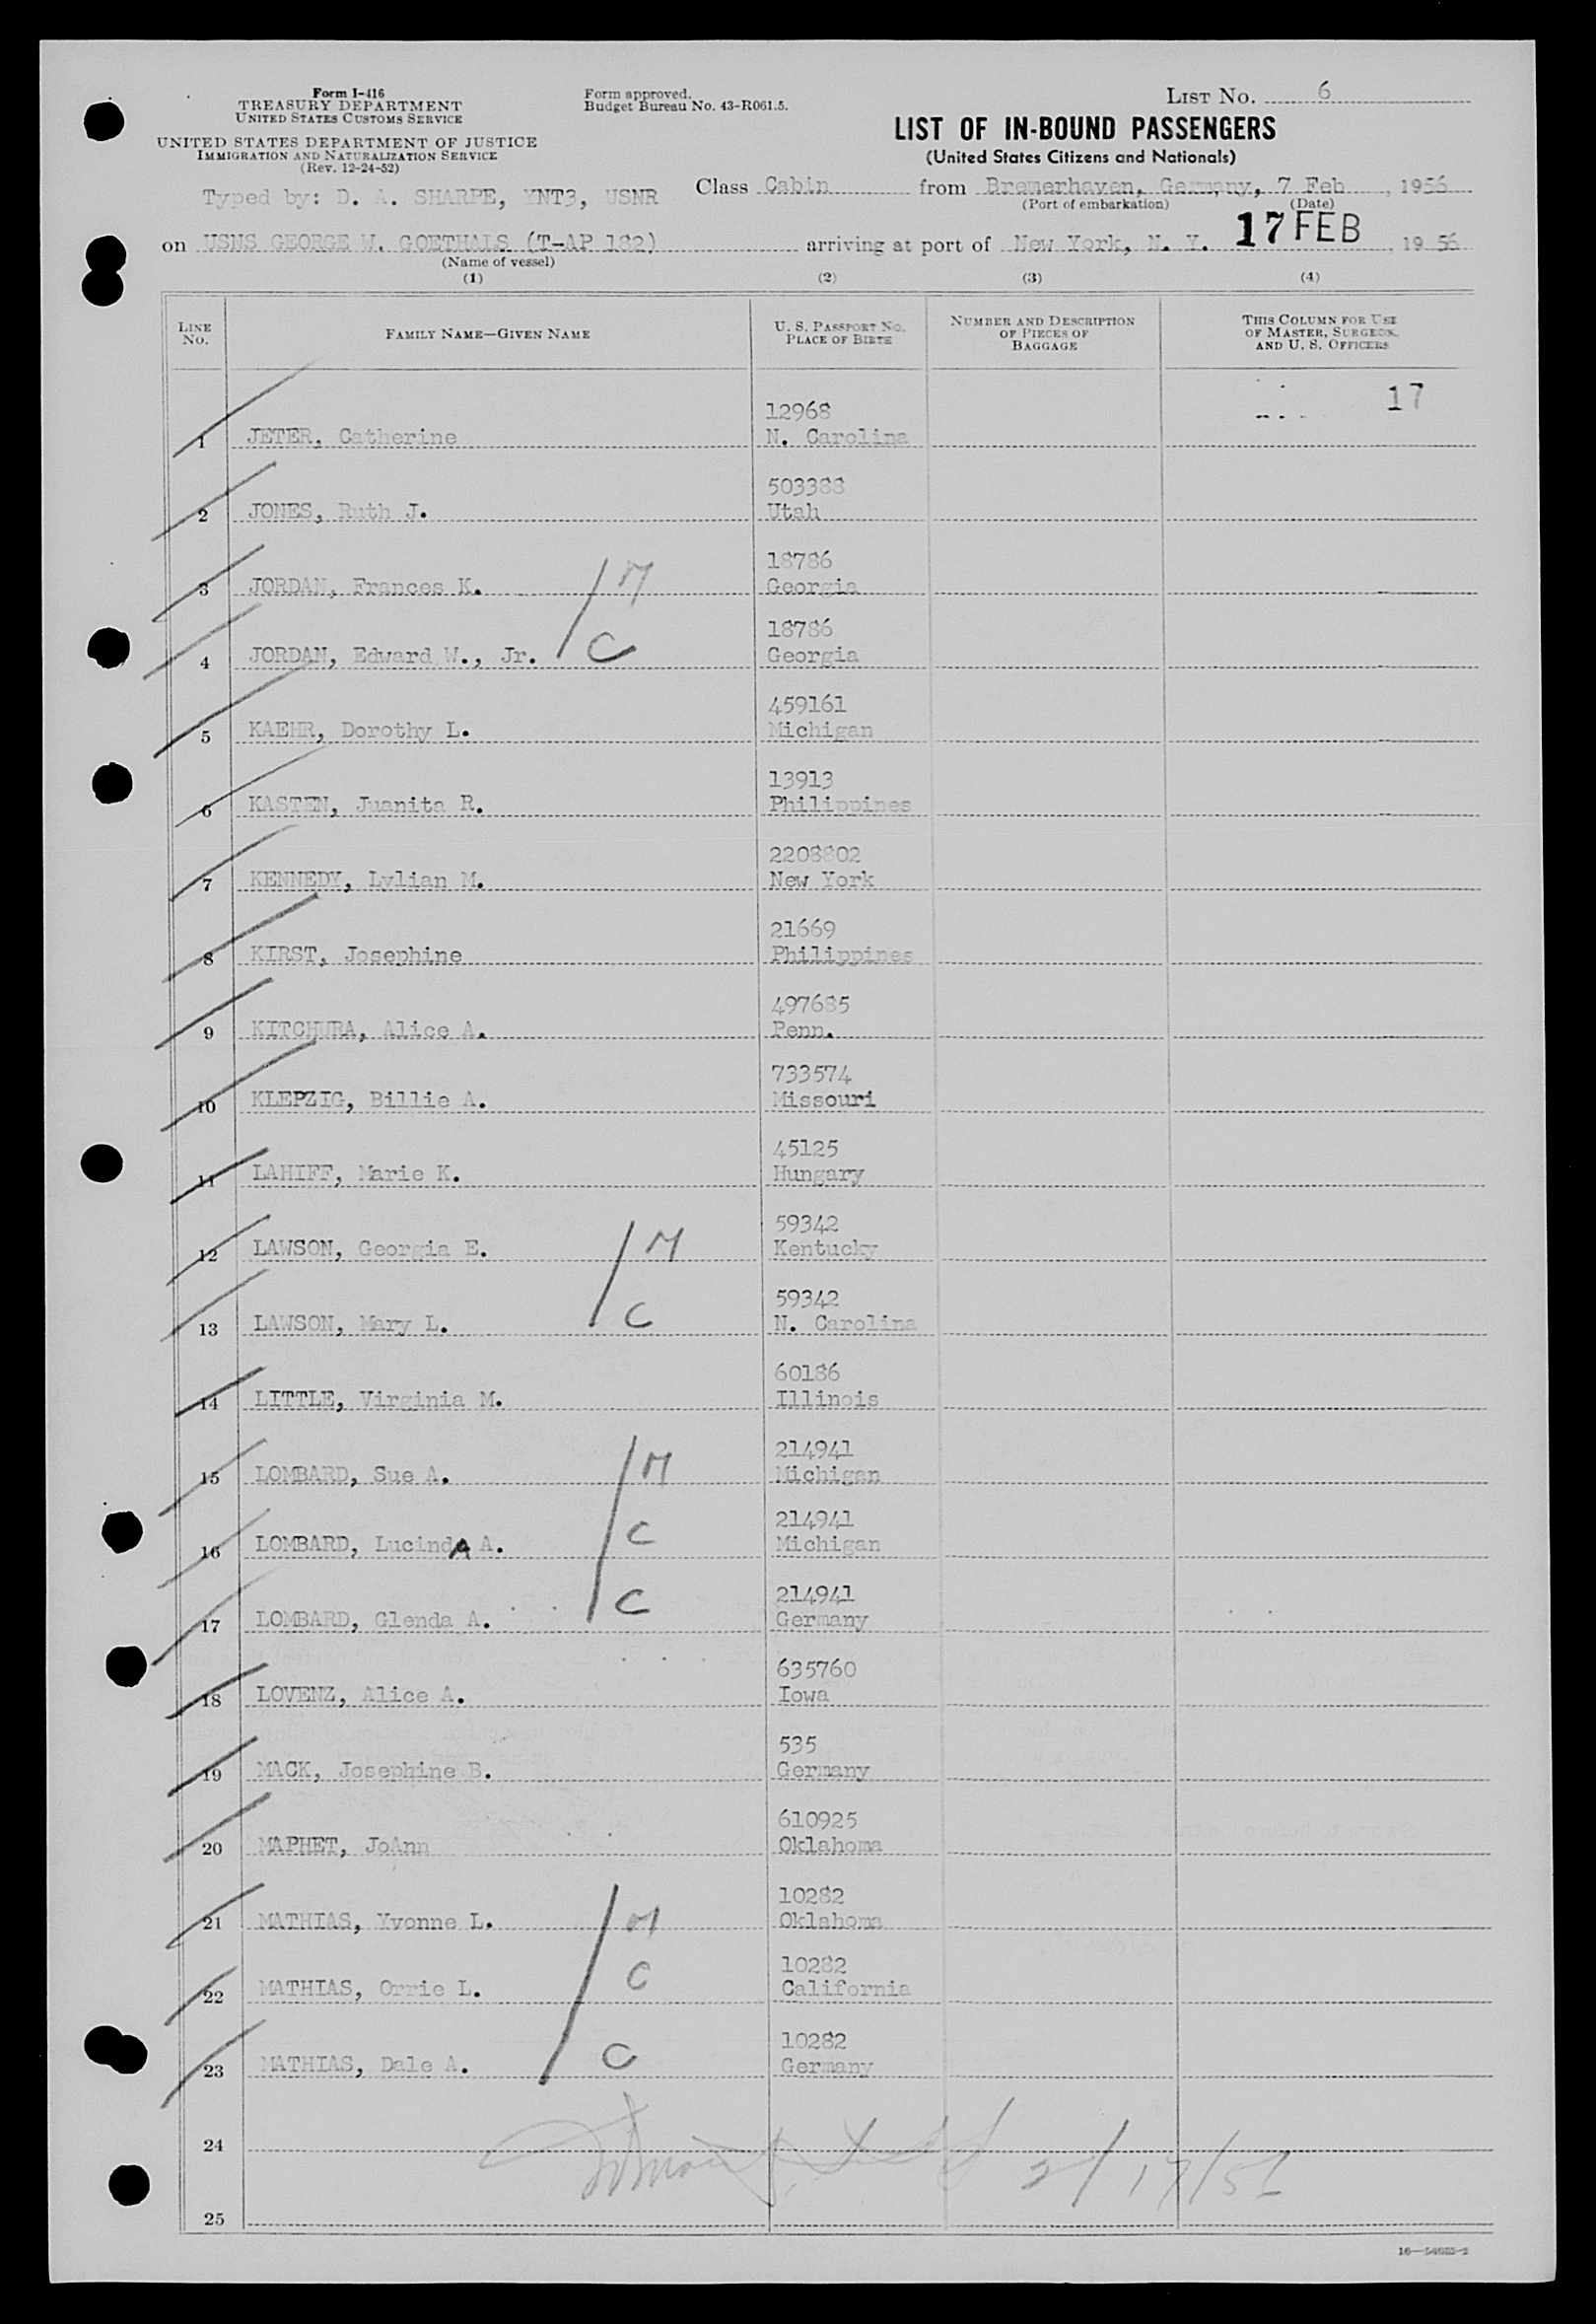 Form I-416
TREASURY DEPARTMENT
UNITED STATES CUSTOMS SERVICE
UNITED STATES DEPARTMENT OF JUSTICE
IMMIGRATION AND NATURALIZATION SERVICE
(Rev. 12-24-52)
Form approved.
Budget Bureau No. 43-R061.5.
LIST No. 6
LIST OF IN-BOUND PASSENGERS
(United States Citizens and Nationals)
Typed by: D. A. SHARPE, YNT3, USNR
Class Cabin from Bremerhaven, Germany, 7 Feb, 1956
(Port of embarkation) (Date)
on USNS GEORGE W. GOETHALS (T-AP 182) arriving at port of New York, N. Y. 17 FEB, 1956
(Name of vessel)
(1) (2) (3) (4)
LINE No. FAMILY NAME—GIVEN NAME U. S. PASSPORT No. PLACE OF BIRTH NUMBER AND DESCRIPTION OF PIECES OF BAGGAGE THIS COLUMN FOR USE OF MASTER, SURGEON, AND U. S. OFFICERS
12968 17
1 JETER, Catherine N. Carolina
503388
2 JONES, Ruth J. Utah
18786
3 JORDAN, Frances K. M Georgia
18786
4 JORDAN, Edward W., Jr. C Georgia
459161
5 KAEHR, Dorothy L. Michigan
13913
6 KASTEN, Juanita R. Philippines
2208802
7 KENNEDY, Lylian M. New York
21669
8 KIRST, Josephine Philippines
497685
9 KITCHURA, Alice A. Penn.
733574
10 KLEPZIG, Billie A. Missouri
45125
11 LAHIFF, Marie K. Hungary
59342
12 LAWSON, Georgia E. M Kentucky
59342
13 LAWSON, Mary L. C N. Carolina
60186
14 LITTLE, Virginia M. Illinois
214941
15 LOMBARD, Sue A. M Michigan
214941
16 LOMBARD, LucindA A. C Michigan
214941
17 LOMBARD, Glenda A. C Germany
635760
18 LOVENZ, Alice A. Iowa
535
19 MACK, Josephine B. Germany
610925
20 MAPHET, JoAnn Oklahoma
10282
21 MATHIAS, Yvonne L. M Oklahoma
10282
22 MATHIAS, Orrie L. C California
10282
23 MATHIAS, Dale A. C Germany
24
2/17/56
25